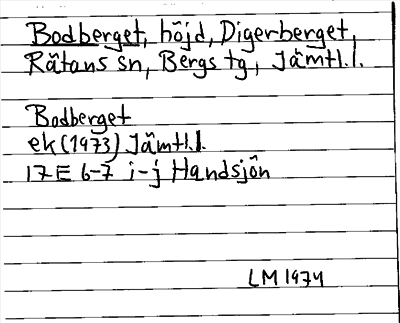 Bodberget, höjd, Digerberget,
Rätans sn, Bergs tg, Jämtl.l.
Bodberget
ek (1973) Jämtl.l.
17E 6-7 i-j Handsjön
LM 1974